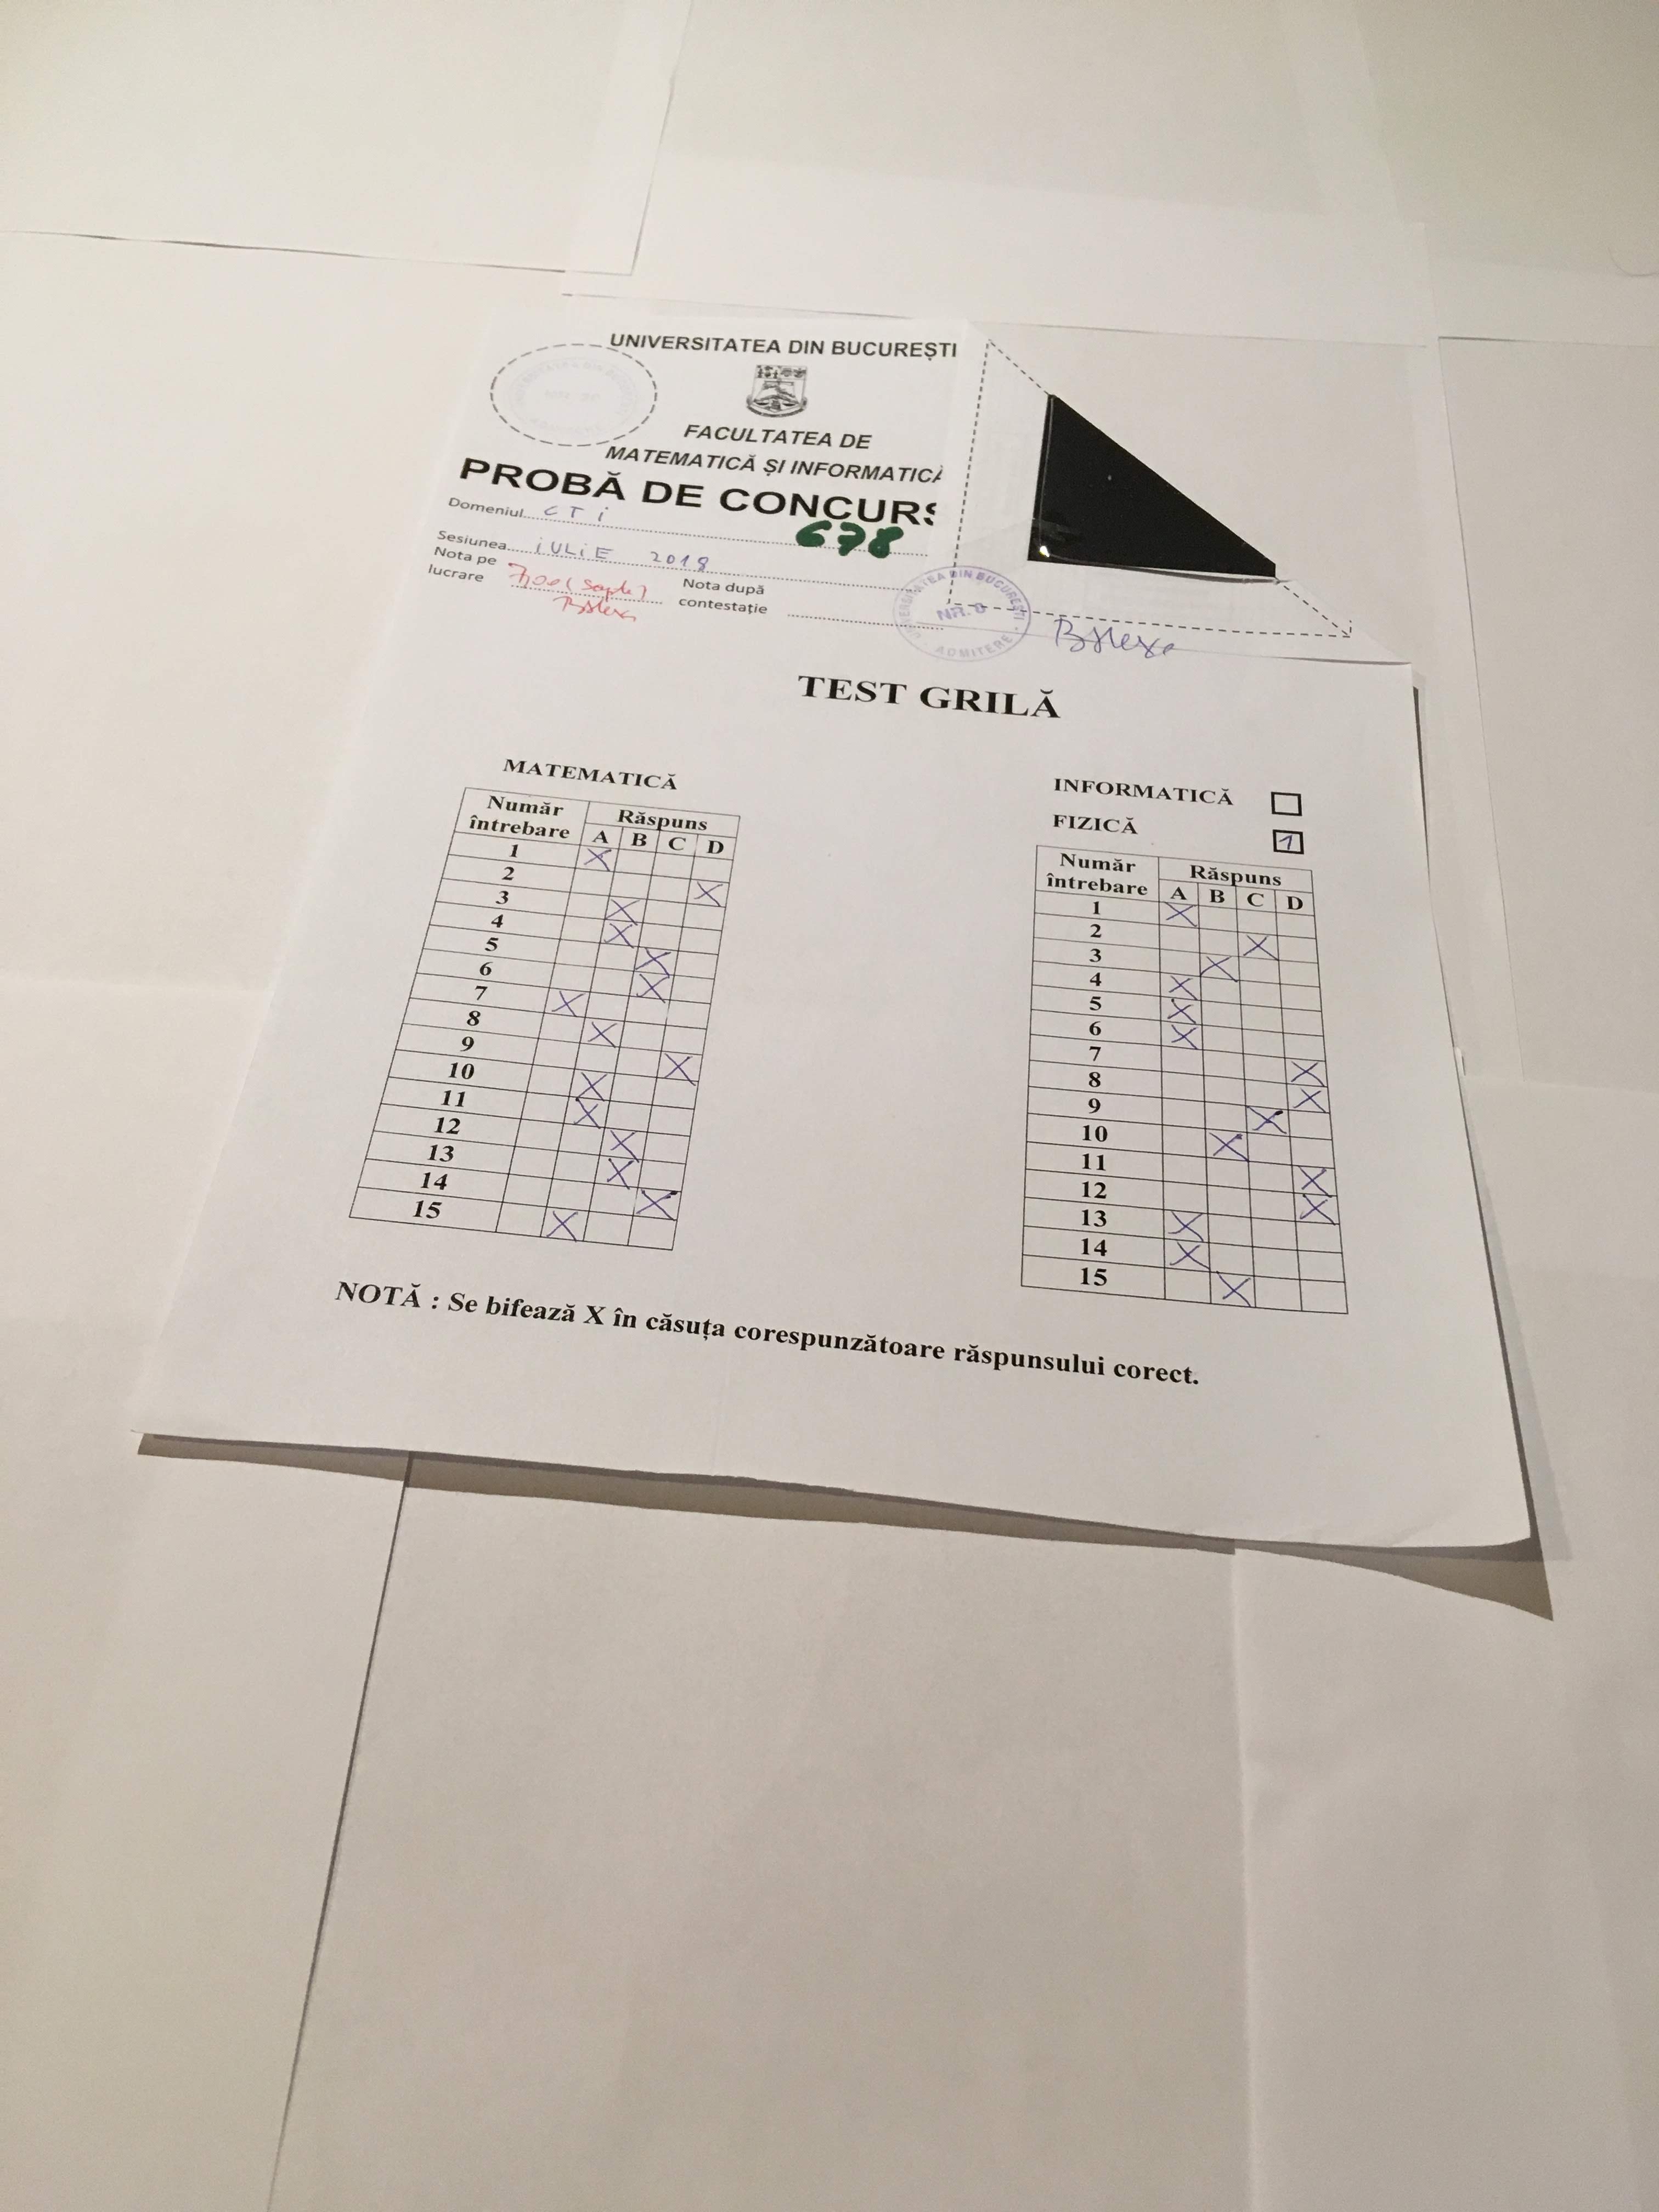 UNIVERSITATEA DIN BUCUREȘTI
FACULTATEA DE
MATEMATICĂ ȘI INFORMATICĂ
PROBĂ DE CONCURS
Domeniul CTi
678
Sesiunea iULiE 2018
Nota pe lucrare 7,00 (șapte)
Nota după contestație
UNIVERSITATEA DIN BUCUREȘTI
NR. 8
ADMITERE
TEST GRILĂ
MATEMATICĂ
Număr întrebare Răspuns
A B C D
1 X
2 X
3 X
4 X
5 X
6 X
7 X
8 X
9 X
10 X
11 X
12 X
13 X
14 X
15 X
INFORMATICĂ
FIZICĂ 1
Număr întrebare Răspuns
A B C D
1 X
2 X
3 X
4 X
5 X
6 X
7 X
8 X
9 X
10 X
11 X
12 X
13 X
14 X
15 X
NOTĂ : Se bifează X în căsuța corespunzătoare răspunsului corect.